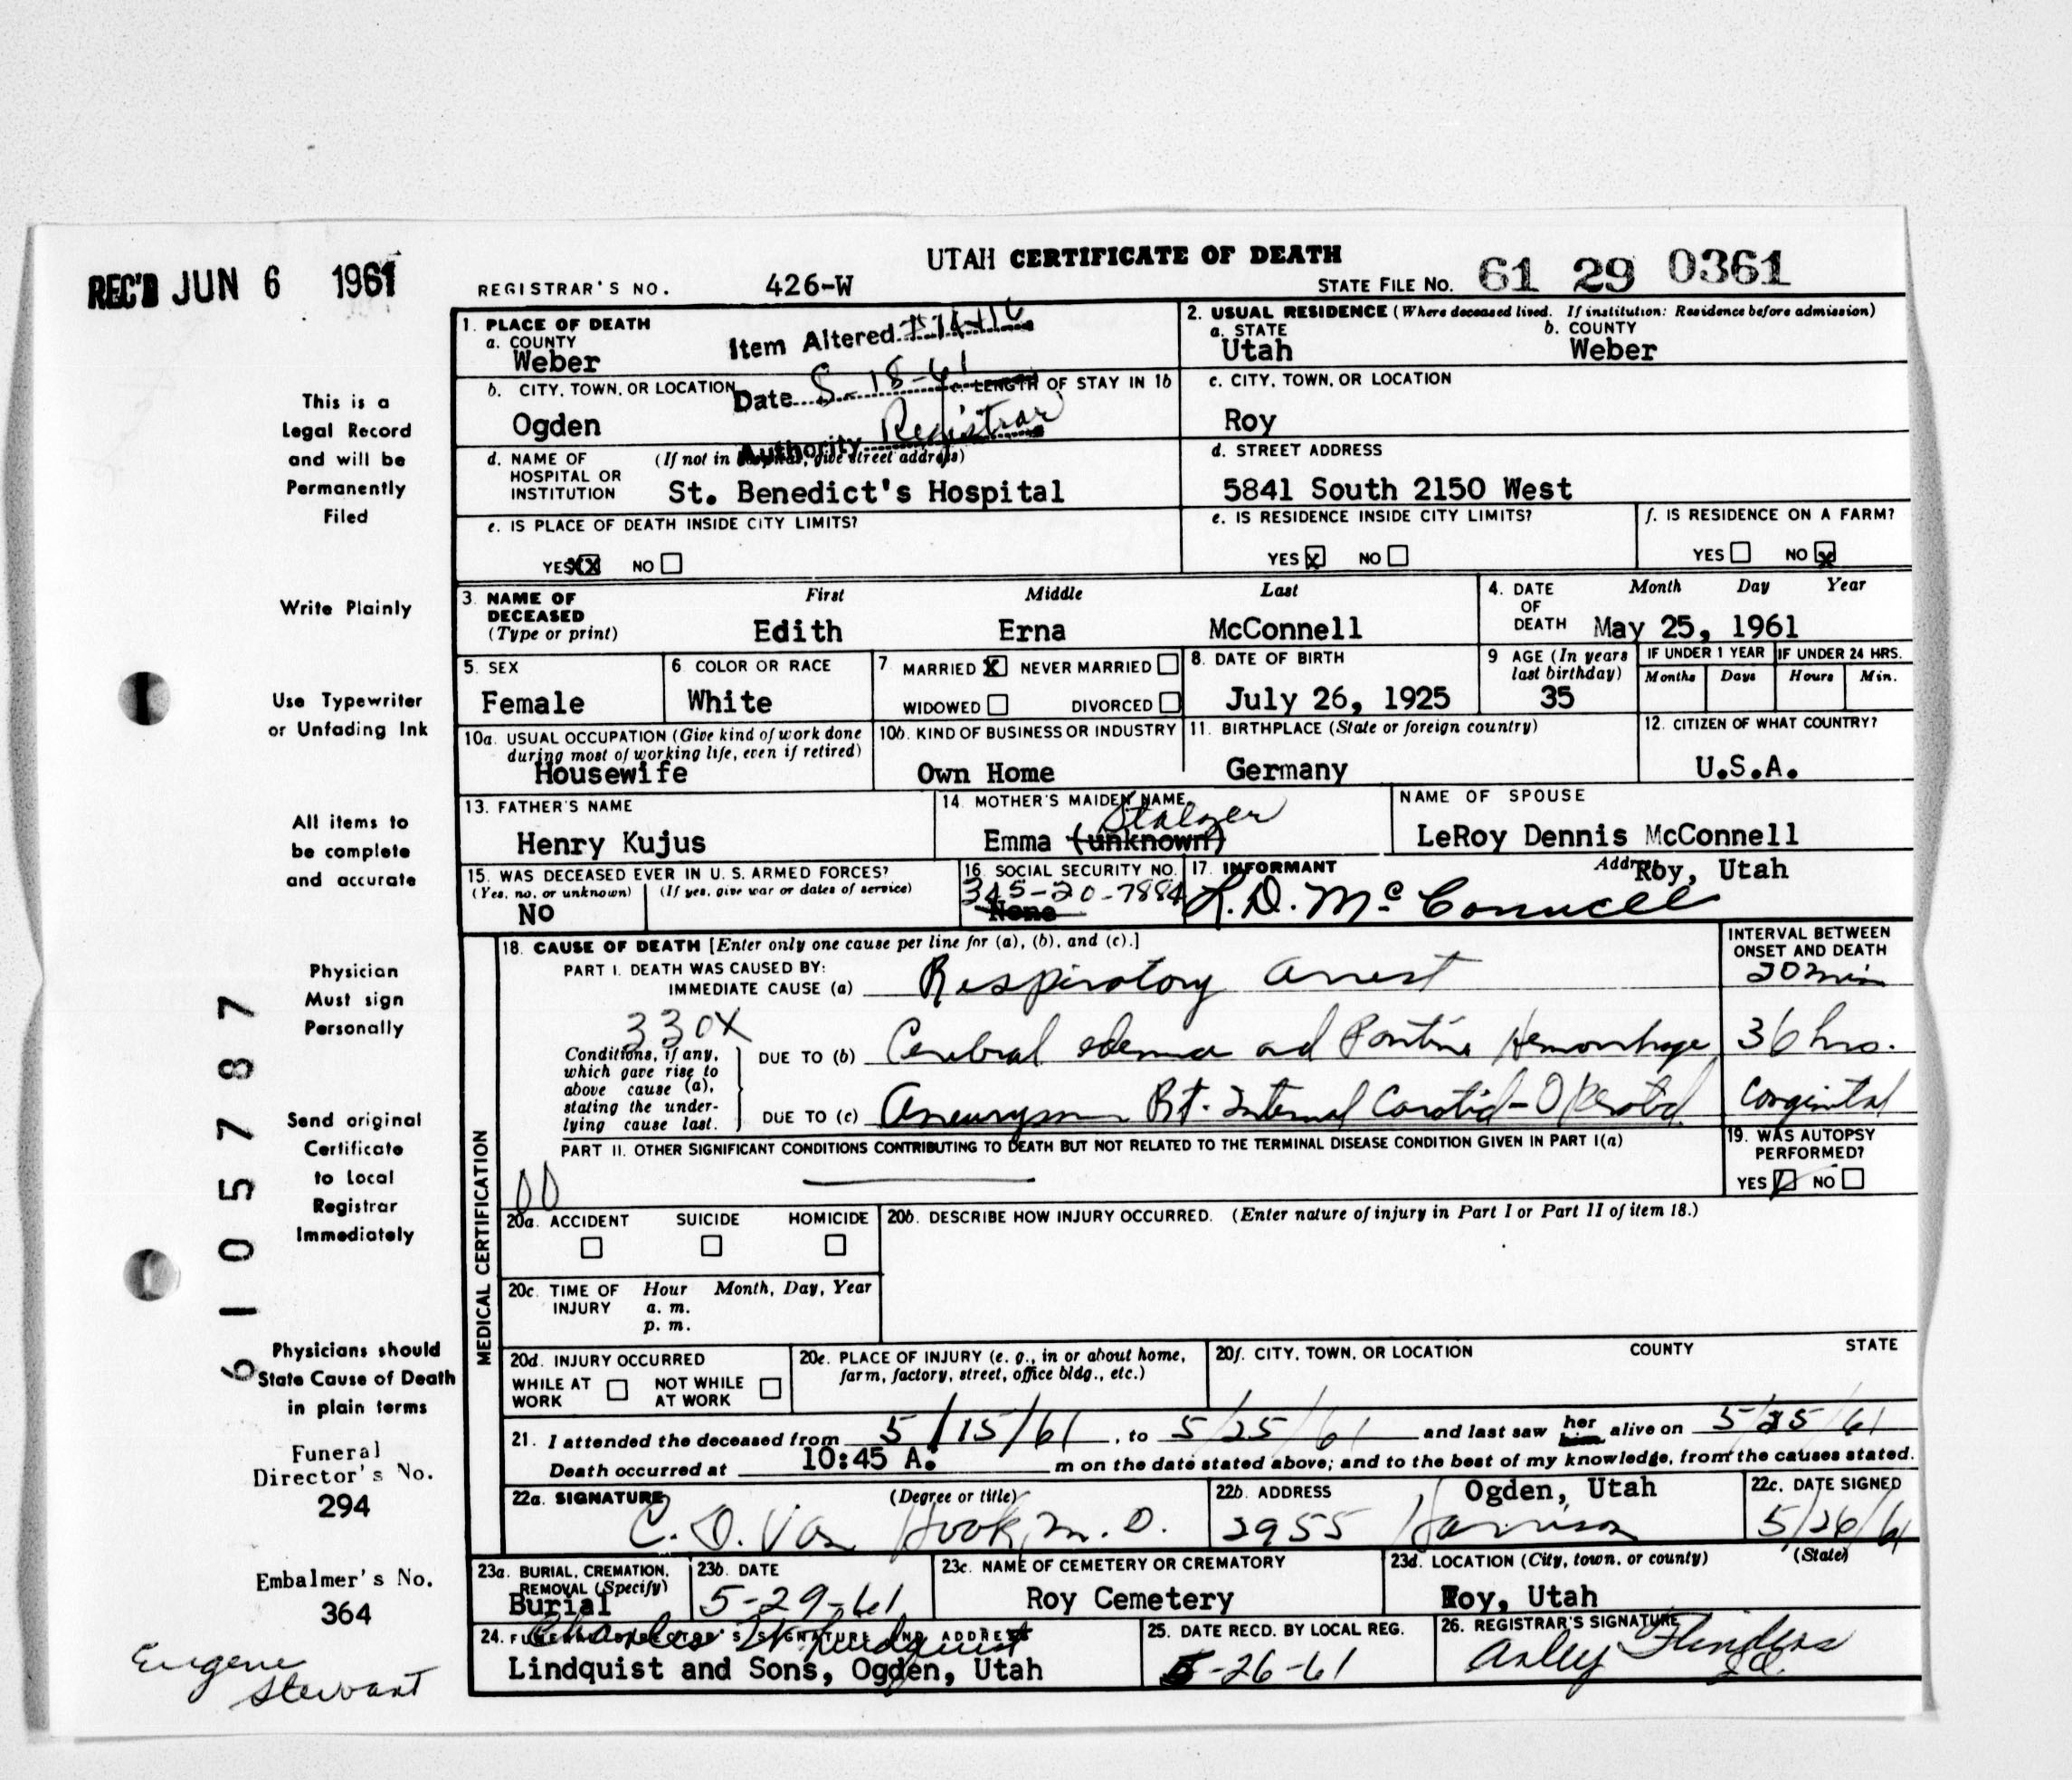 UTAH CERTIFICATE OF DEATH
REC'D JUN 6 1961
REGISTRAR'S NO. 426-W
STATE FILE NO. 61 29 0361
1. PLACE OF DEATH
a. COUNTY
Weber
Item Altered
Date 8-18-61
Authority Registrar
2. USUAL RESIDENCE (Where deceased lived. If institution: Residence before admission)
a. STATE
Utah
b. COUNTY
Weber
b. CITY, TOWN, OR LOCATION
Ogden
c. LENGTH OF STAY IN 1b
c. CITY, TOWN, OR LOCATION
Roy
d. NAME OF HOSPITAL OR INSTITUTION
(If not in hospital, give street address)
St. Benedict's Hospital
d. STREET ADDRESS
5841 South 2150 West
e. IS PLACE OF DEATH INSIDE CITY LIMITS?
YES XX NO
e. IS RESIDENCE INSIDE CITY LIMITS?
YES X NO
f. IS RESIDENCE ON A FARM?
YES NO X
3. NAME OF DECEASED
(Type or print)
First Middle Last
Edith Erna McConnell
4. DATE OF DEATH
Month Day Year
May 25, 1961
5. SEX
Female
6 COLOR OR RACE
White
7. MARRIED X NEVER MARRIED
WIDOWED DIVORCED
8. DATE OF BIRTH
July 26, 1925
9 AGE (In years last birthday)
35
IF UNDER 1 YEAR
Months Days
IF UNDER 24 HRS.
Hours Min.
10a. USUAL OCCUPATION (Give kind of work done during most of working life, even if retired)
Housewife
10b. KIND OF BUSINESS OR INDUSTRY
Own Home
11. BIRTHPLACE (State or foreign country)
Germany
12. CITIZEN OF WHAT COUNTRY?
U.S.A.
13. FATHER'S NAME
Henry Kujus
14. MOTHER'S MAIDEN NAME
Emma (unknown)
NAME OF SPOUSE
LeRoy Dennis McConnell
15. WAS DECEASED EVER IN U. S. ARMED FORCES?
(Yes, no, or unknown) (If yes, give war or dates of service)
No
16. SOCIAL SECURITY NO.
345-20-7884
None
17. INFORMANT
L. D. McConnell
Address
Roy, Utah
MEDICAL CERTIFICATION
18. CAUSE OF DEATH [Enter only one cause per line for (a), (b), and (c).]
INTERVAL BETWEEN ONSET AND DEATH
PART I. DEATH WAS CAUSED BY:
IMMEDIATE CAUSE (a) Respiratory arrest
20 min
330X
Conditions, if any, which gave rise to above cause (a), stating the underlying cause last.
DUE TO (b) Cerebral edema and Pontine Hemorrhage
36 hrs.
DUE TO (c) Aneurysm Rt. Internal Carotid - Operated
Congenital
PART II. OTHER SIGNIFICANT CONDITIONS CONTRIBUTING TO DEATH BUT NOT RELATED TO THE TERMINAL DISEASE CONDITION GIVEN IN PART I(a)
19. WAS AUTOPSY PERFORMED?
YES NO
20a. ACCIDENT SUICIDE HOMICIDE
20b. DESCRIBE HOW INJURY OCCURRED. (Enter nature of injury in Part I or Part II of item 18.)
20c. TIME OF INJURY
Hour Month, Day, Year
a. m.
p. m.
20d. INJURY OCCURRED
WHILE AT WORK NOT WHILE AT WORK
20e. PLACE OF INJURY (e. g., in or about home, farm, factory, street, office bldg., etc.)
20f. CITY, TOWN, OR LOCATION COUNTY STATE
21. I attended the deceased from 5/15/61, to 5/25/61 and last saw her him alive on 5/25/61
Death occurred at 10:45 A. m on the date stated above; and to the best of my knowledge, from the causes stated.
22a. SIGNATURE (Degree or title)
C. D. Van Hook, M. D.
22b. ADDRESS
Ogden, Utah
2955 Harrison
22c. DATE SIGNED
5/26/61
23a. BURIAL, CREMATION, REMOVAL (Specify)
Burial
23b. DATE
5-29-61
23c. NAME OF CEMETERY OR CREMATORY
Roy Cemetery
23d. LOCATION (City, town, or county) (State)
Roy, Utah
24. FUNERAL DIRECTOR'S SIGNATURE AND ADDRESS
Charles W. Lindquist
Lindquist and Sons, Ogden, Utah
25. DATE RECD. BY LOCAL REG.
5-26-61
26. REGISTRAR'S SIGNATURE
Arley Flinders
This is a
Legal Record
and will be
Permanently
Filed
Write Plainly
Use Typewriter
or Unfading Ink
All items to
be complete
and accurate
Physician
Must sign
Personally
Send original
Certificate
to Local
Registrar
Immediately
Physicians should
State Cause of Death
in plain terms
Funeral
Director's No.
294
Embalmer's No.
364
Eugene
Stewart
6105787